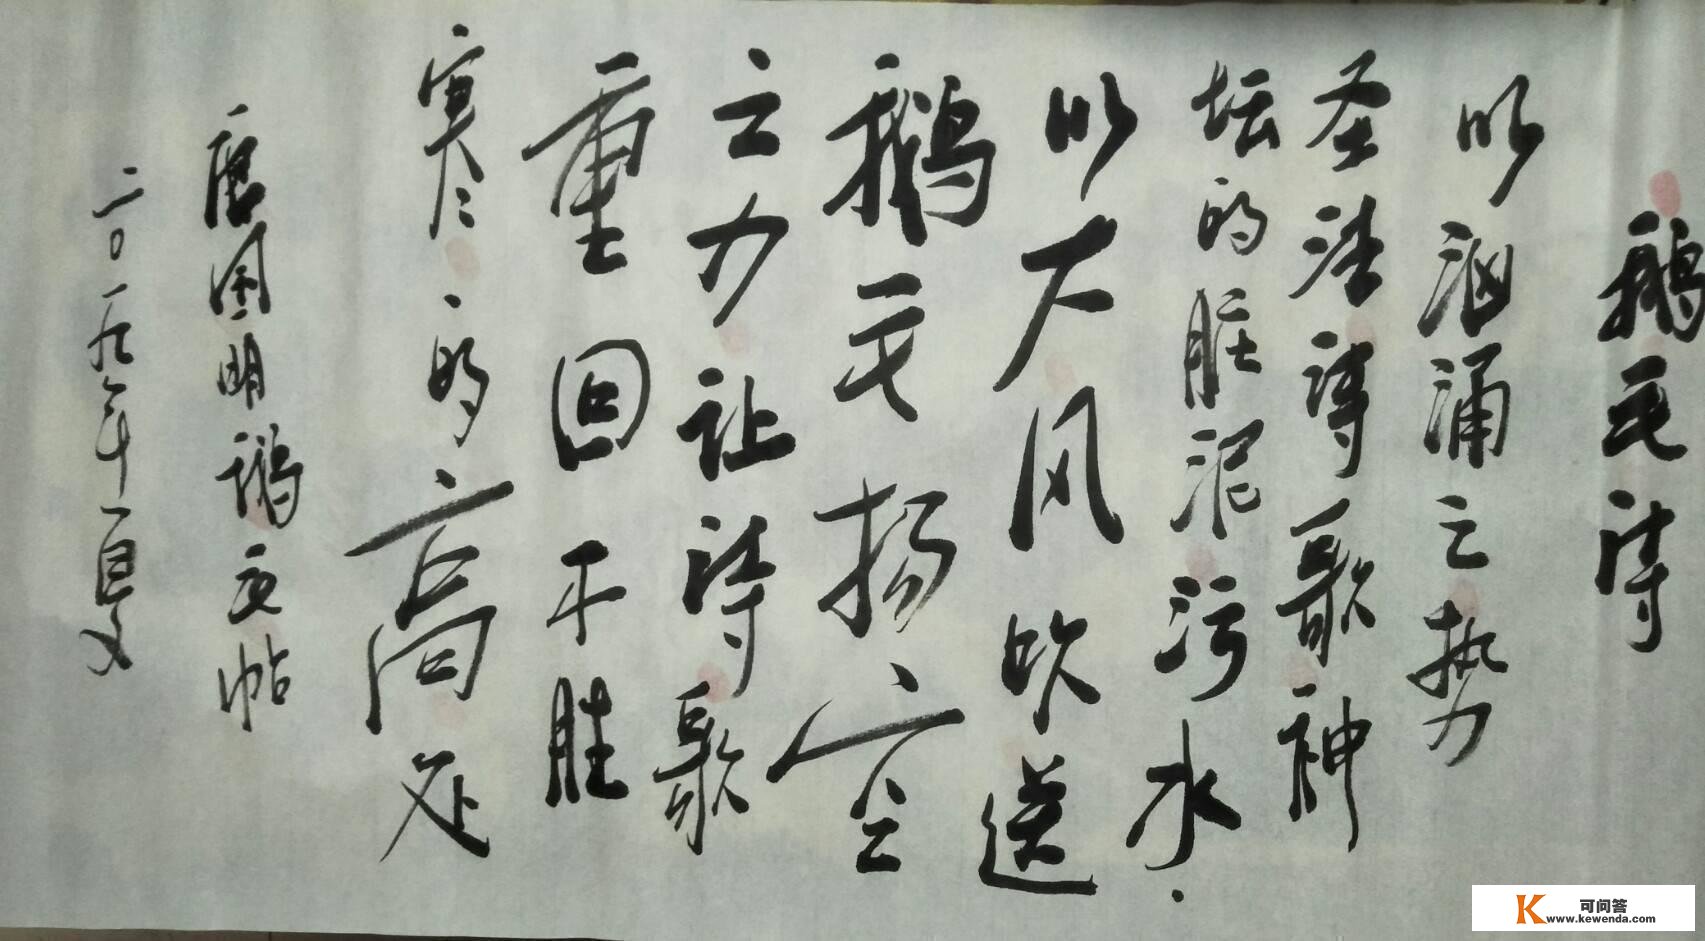 鹅毛诗
以汹涌之势
圣洁诗歌神
坛的脏泥污水.
以大风吹送
鹅毛扬空
之力让诗歌
重回不胜
寒的高处
唐国明鹅毛帖
二0一九年一
K 可问答
www.kewenda.com